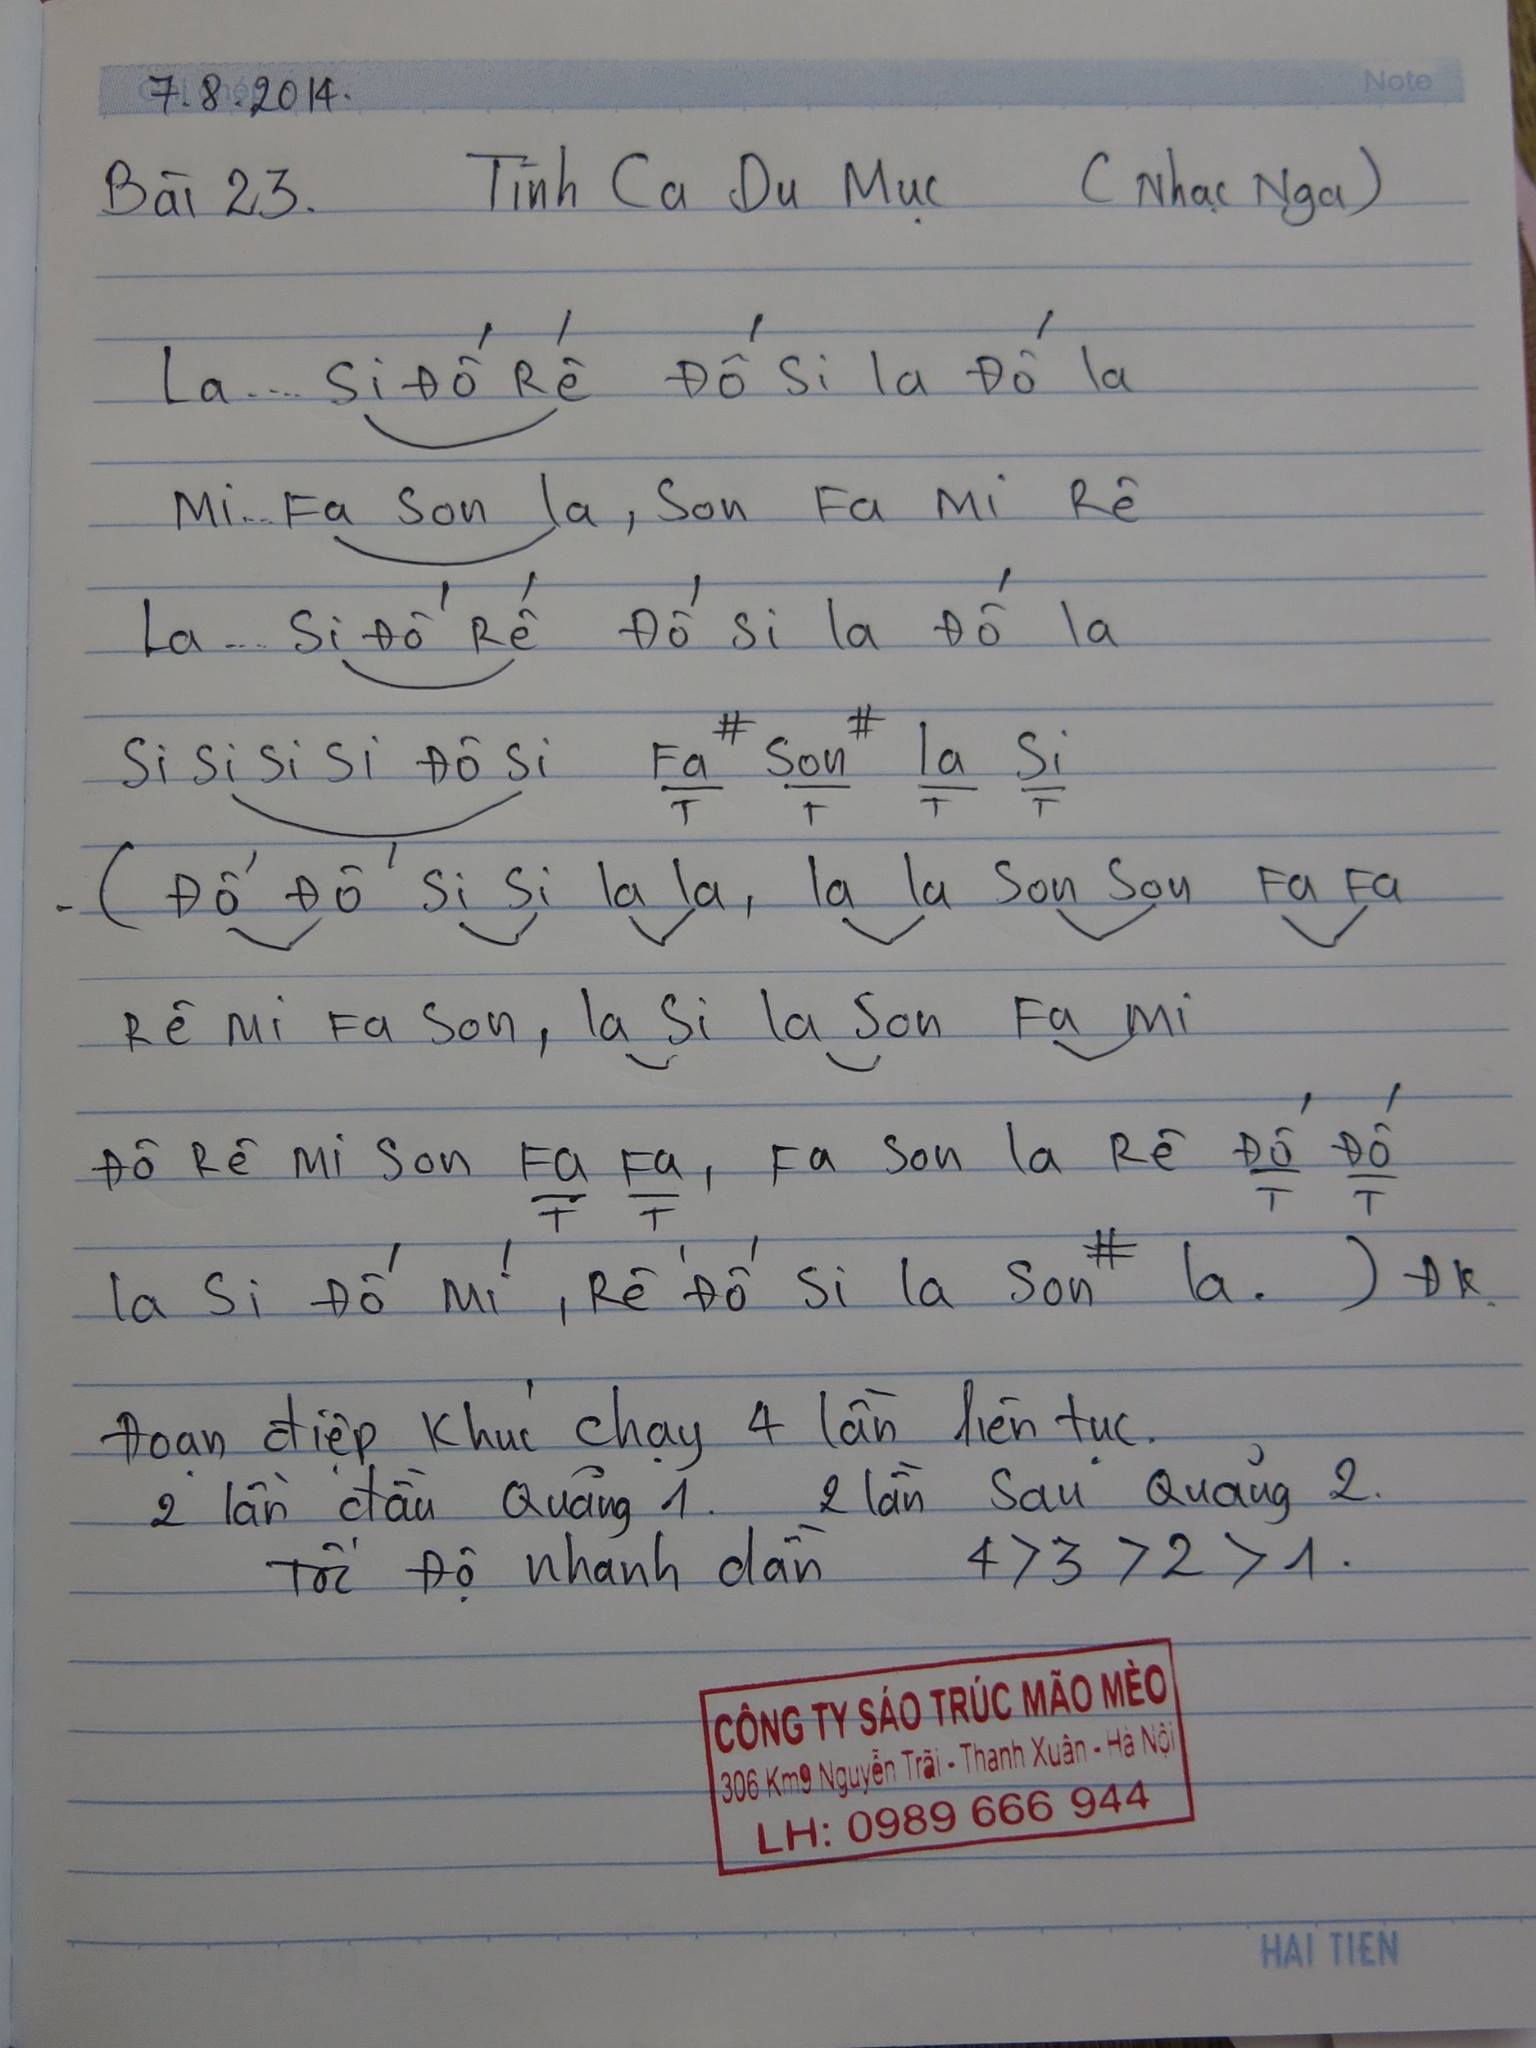 7.8.2014.
Note
Bài 23. Tình Ca Du Mục (Nhạc Nga)
La.... Si Đố Rế Đố Si la Đố la
Mi... Fa Son la, Son Fa Mi Rê
La.... Si Đố Rế Đố Si la Đố la
Si Si Si Si Đô Si Fa# Son# la Si
T T T T
- (Đố Đố Si Si la la, la la Son Son Fa Fa
Rê Mi Fa Son, la Si la Son Fa Mi
Đô Rê Mi Son Fa Fa, Fa Son la Rê Đố Đố
T T T T
la Si Đố Mí, Rế Đố Si la Son# la. ) ĐK.
Đoạn điệp khúc chạy 4 lần liên tục.
2 lần đầu Quảng 1. 2 lần sau Quảng 2.
Tốc Độ nhanh dần 4>3>2>1.
CÔNG TY SÁO TRÚC MÃO MÈO
306 Km9 Nguyễn Trãi - Thanh Xuân - Hà Nội
LH: 0989 666 944
HAI TIEN